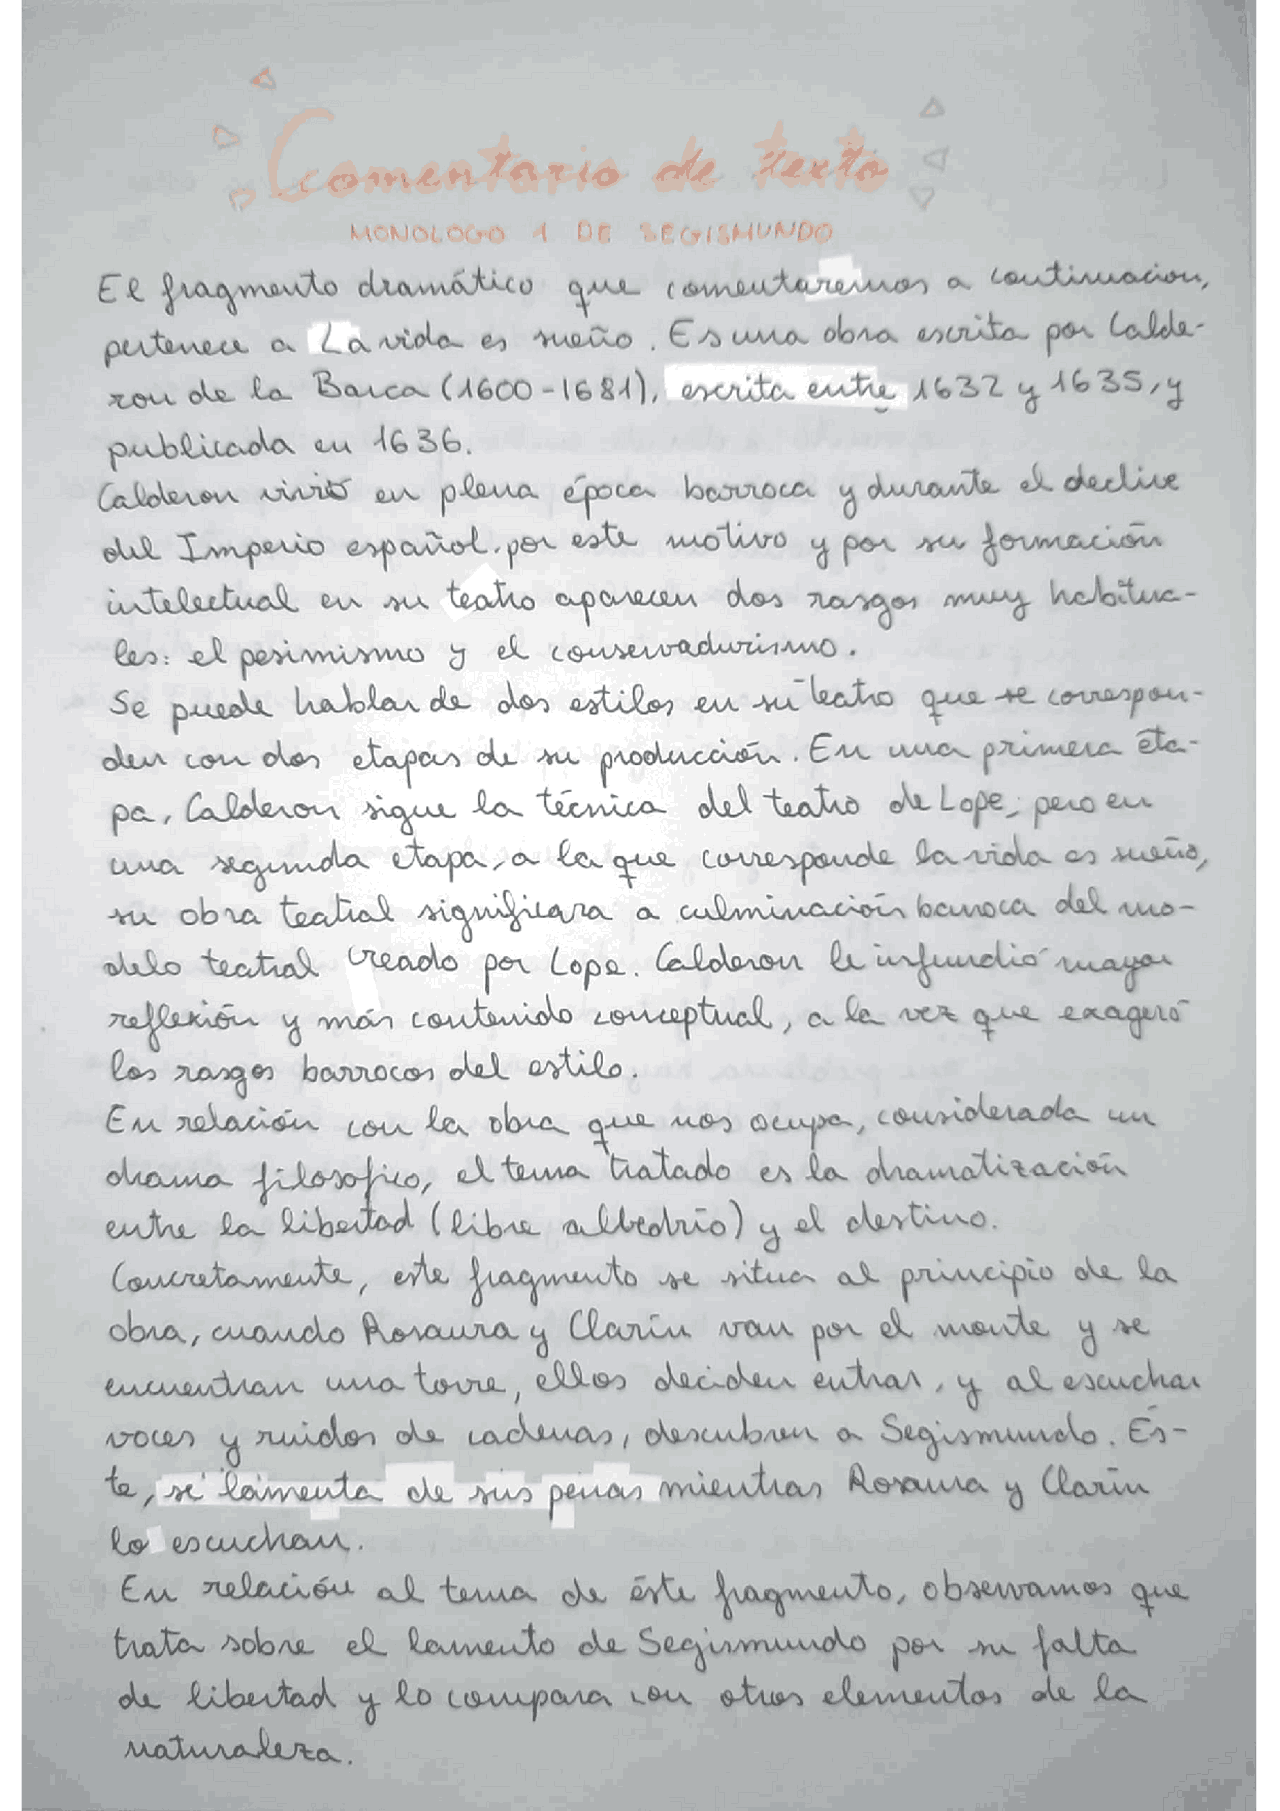 Comentario de texto
MONOLOGO 1 DE SEGISMUNDO
El fragmento dramático que comentaremos a continuacion,
pertenece a La vida es sueño. Es una obra escrita por Calde-
ron de la Barca (1600-1681), escrita entre 1632 y 1635, y
publicada en 1636.
Calderon vivió en plena época barroca y durante el declive
del Imperio español. por este motivo y por su formación
intelectual en su teatro aparecen dos rasgos muy habitua-
les: el pesimismo y el conservadurismo.
Se puede hablar de dos estilos en su teatro que se correspon-
den con dos etapas de su producción. En una primera eta-
pa, Calderon sigue la técnica del teatro de Lope, pero en
una segunda etapa, a la que corresponde la vida es sueño,
su obra teatral significara a culminación barroca del mo-
delo teatral creado por Lope. Calderon le infundió mayor
reflexión y más contenido conceptual, a la vez que exageró
los rasgos barrocos del estilo.
En relación con la obra que nos ocupa, considerada un
drama filosofico, el tema tratado es la dramatización
entre la libertad (libre albedrío) y el destino.
Concretamente, este fragmento se situa al principio de la
obra, cuando Rosaura y Clarín van por el monte y se
encuentran una torre, ellos deciden entrar, y al escuchar
voces y ruidos de cadenas, descubren a Segismundo. És-
te, se lamenta de sus penas mientras Rosaura y Clarín
lo escuchan.
En relación al tema de éste fragmento, observamos que
trata sobre el lamento de Segismundo por su falta
de libertad y lo compara con otros elementos de la
naturaleza.